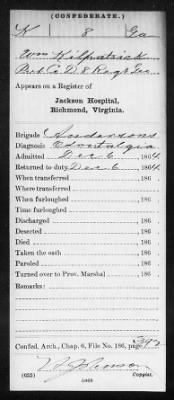 (CONFEDERATE.)
K 8 Ga
Wm Kilpatrick
Pvt Co D 8 Regt Ga
Appears on a Register of
Jackson Hospital,
Richmond, Virginia.
Brigade Andersons
Diagnosis Odontalgia
Admitted Dec 6, 1864.
Returned to duty Dec 6, 1864.
When transferred , 186 .
Where transferred
When furloughed , 186 .
Time furloughed
Discharged , 186 .
Deserted , 186 .
Died , 186 .
Taken the oath , 186 .
Paroled , 186 .
Turned over to Prov. Marshal , 186 .
Remarks:
Confed. Arch., Chap. 6, File No. 186, page 392
(655) Copyist.